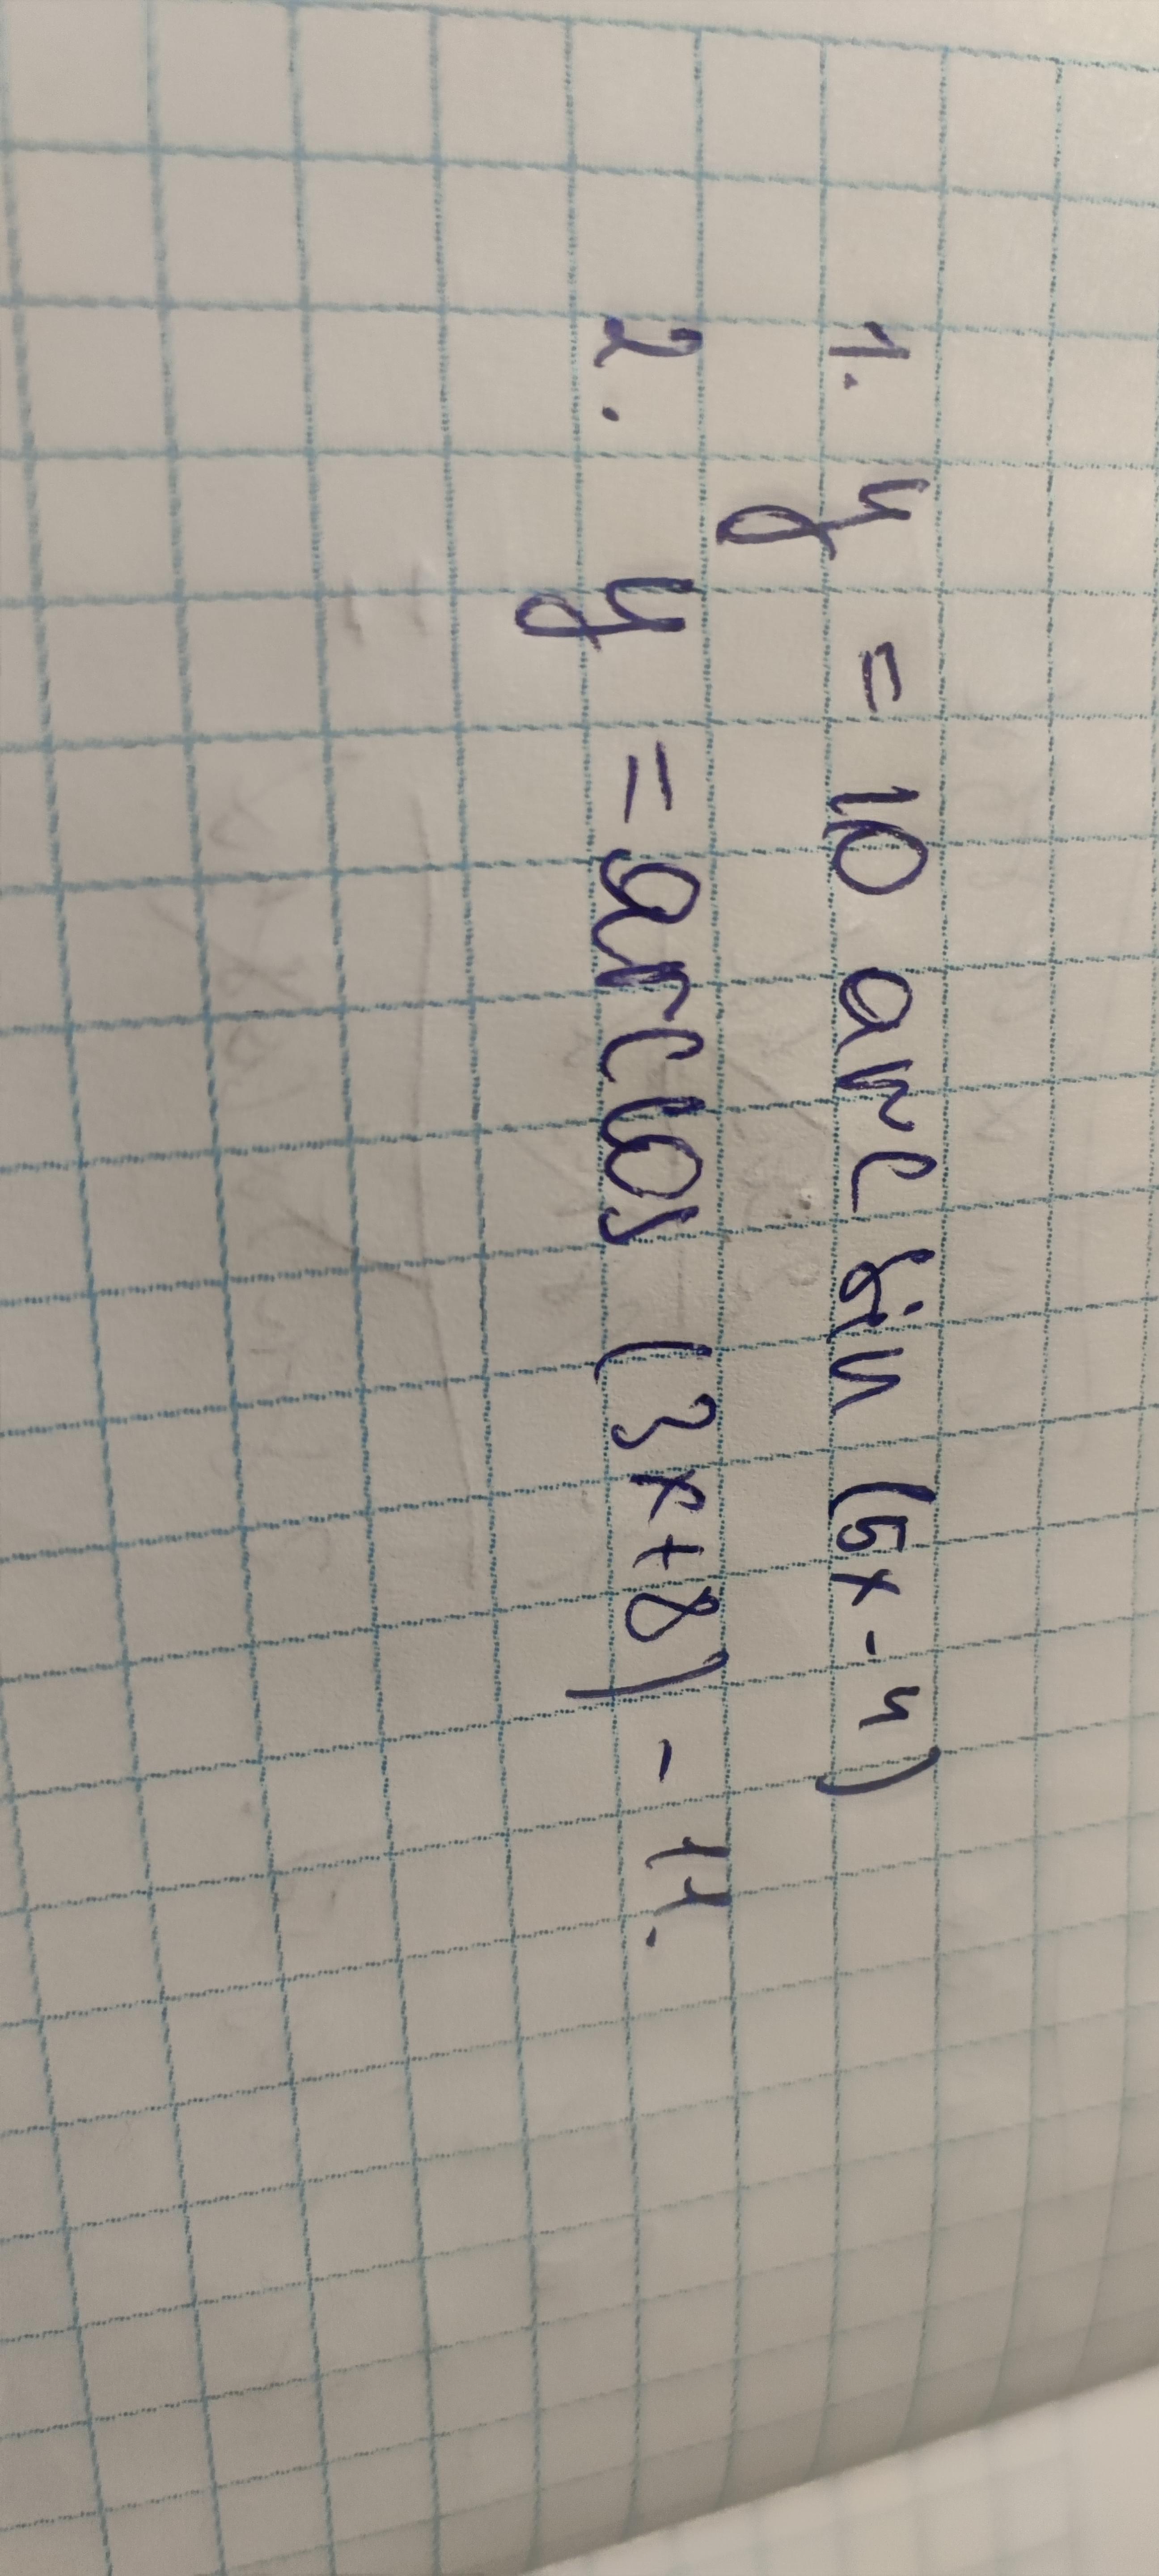 1. y = 10 arcsin (5x - 4)
2. y = arccos (3x+8) - 11.